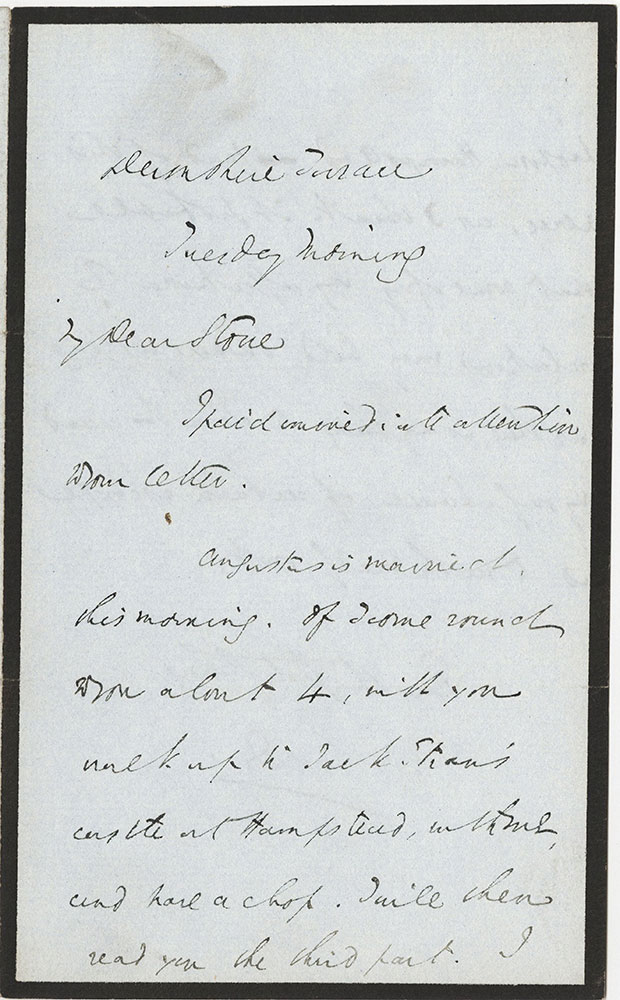 Devonshire Terrace
Tuesday Morning
My Dear Stone
I paid immediate attention
to your letter.
Augustus is married
this morning. If I come round
to you about 4, will you
walk up to Jack Straw's
castle at Hampstead, with me,
and have a chop. I will then
read you the third part. I